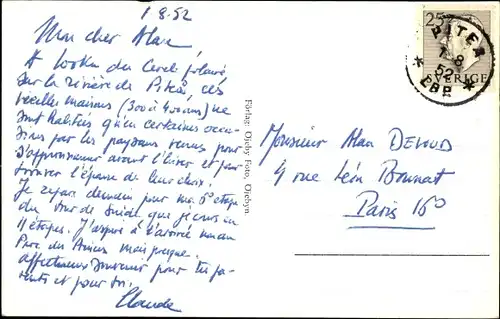 1 8.52
Mon cher Alan
A 100 km du Cercle polaire
sur la rivière de Piteå, ces
vieilles maisons (300 à 400 ans) ne
sont habitées qu'en certaines occa-
sions par les paysans venus pour
s'approvisionner avant l'hiver et pour
trouver l'épouse de leur choix.
Je repars demain pour ma 6e étape
du Tour de Suède que je cours en
11 étapes. J'espère à l'arrivée
Parc des Princes
affectueux souvenir pour tes pa-
rents et pour toi.
Claude
Förlag: Ojeby Foto, Ojebyn.
25
SVERIGE
PITEÅ
1-8
52
* LBR *
Monsieur Alan DELOUD
4 rue Léon Bonnat
Paris 16e